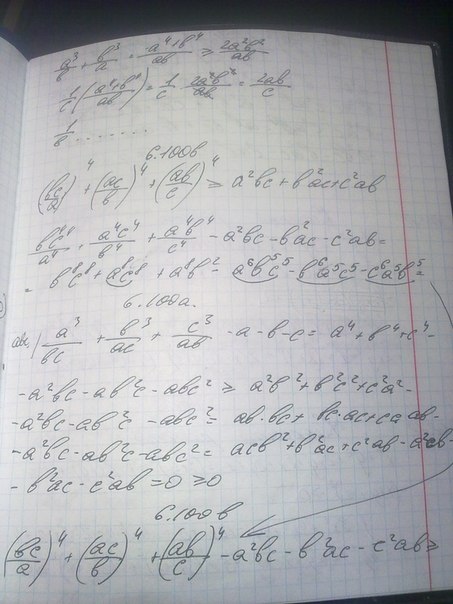 a³/b + b³/a = a⁴+b⁴/ab ≥ 2a²b²/ab
1/c (a⁴+b⁴/ab) = 1/c · 2a²b²/ab = 2ab/c
1/b ........
6.100в
(bc/a)⁴ + (ac/b)⁴ + (ab/c)⁴ ≥ a²bc + b²ac + c²ab
b⁴c⁴/a⁴ + a⁴c⁴/b⁴ + a⁴b⁴/c⁴ - a²bc - b²ac - c²ab =
= b⁸c⁸ + a⁸c⁸ + a⁸b⁸ - a⁶b⁵c⁵ - b⁶a⁵c⁵ - c⁶a⁵b⁵ =
6.100а.
abc / a³/bc + b³/ac + c³/ab - a - b - c = a⁴ + b⁴ + c⁴ -
- a²bc - ab²c - abc² ≥ a²b² + b²c² + c²a² -
- a²bc - ab²c - abc² = ab·bc + bc·ac + ca·ab -
- a²bc - ab²c - abc² = acb² + b²ac + c²ab - a²cb -
- b²ac - c²ab = 0 ≥ 0
6.100в
(bc/a)⁴ + (ac/b)⁴ + (ab/c)⁴ - a²bc - b²ac - c²ab ≥